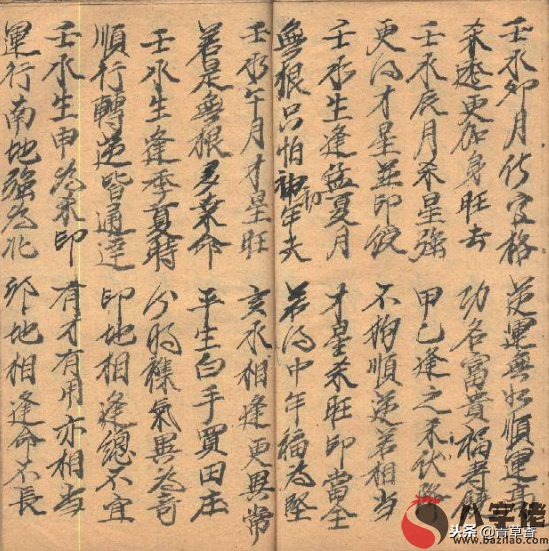 壬水卯月作官格 逆運無如順運高
杀透更加身旺去 功名富貴福壽
壬水辰月杀星強 甲己逢之杀伏
更得才星並印綬 不拘順逆若相当
壬水生逢孟夏月 才星杀旺印當全
無根只怕 若得中年福為堅
壬水午月才星旺 亥水相逢更異常
若是無根多業命 平生白手買田庄
壬水生逢季夏時 分明襍氣異為奇
順行轉逆皆通達 印地相逢總不宜
壬水生申為杀印 有才有用亦相当
運行南地強為化 卯地相逢命不長
八字佬
头条@青草香
www.bazilao.com